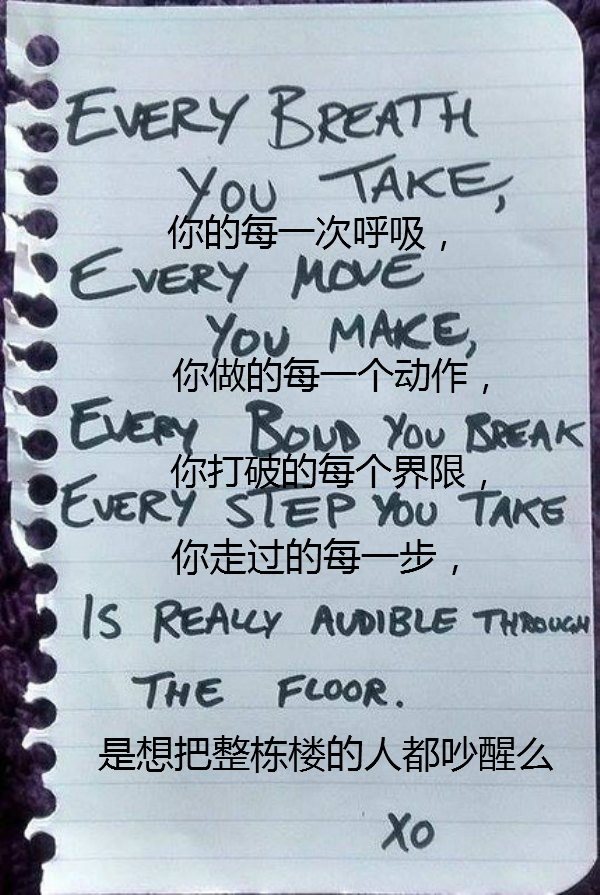 EVERY BREATH
YOU TAKE,
你的每一次呼吸，
EVERY MOVE
YOU MAKE,
你做的每一个动作，
EVERY BOUD YOU BREAK
你打破的每个界限，
EVERY STEP YOU TAKE
你走过的每一步，
IS REALLY AUDIBLE THROUGH
THE FLOOR.
是想把整栋楼的人都吵醒么
XO